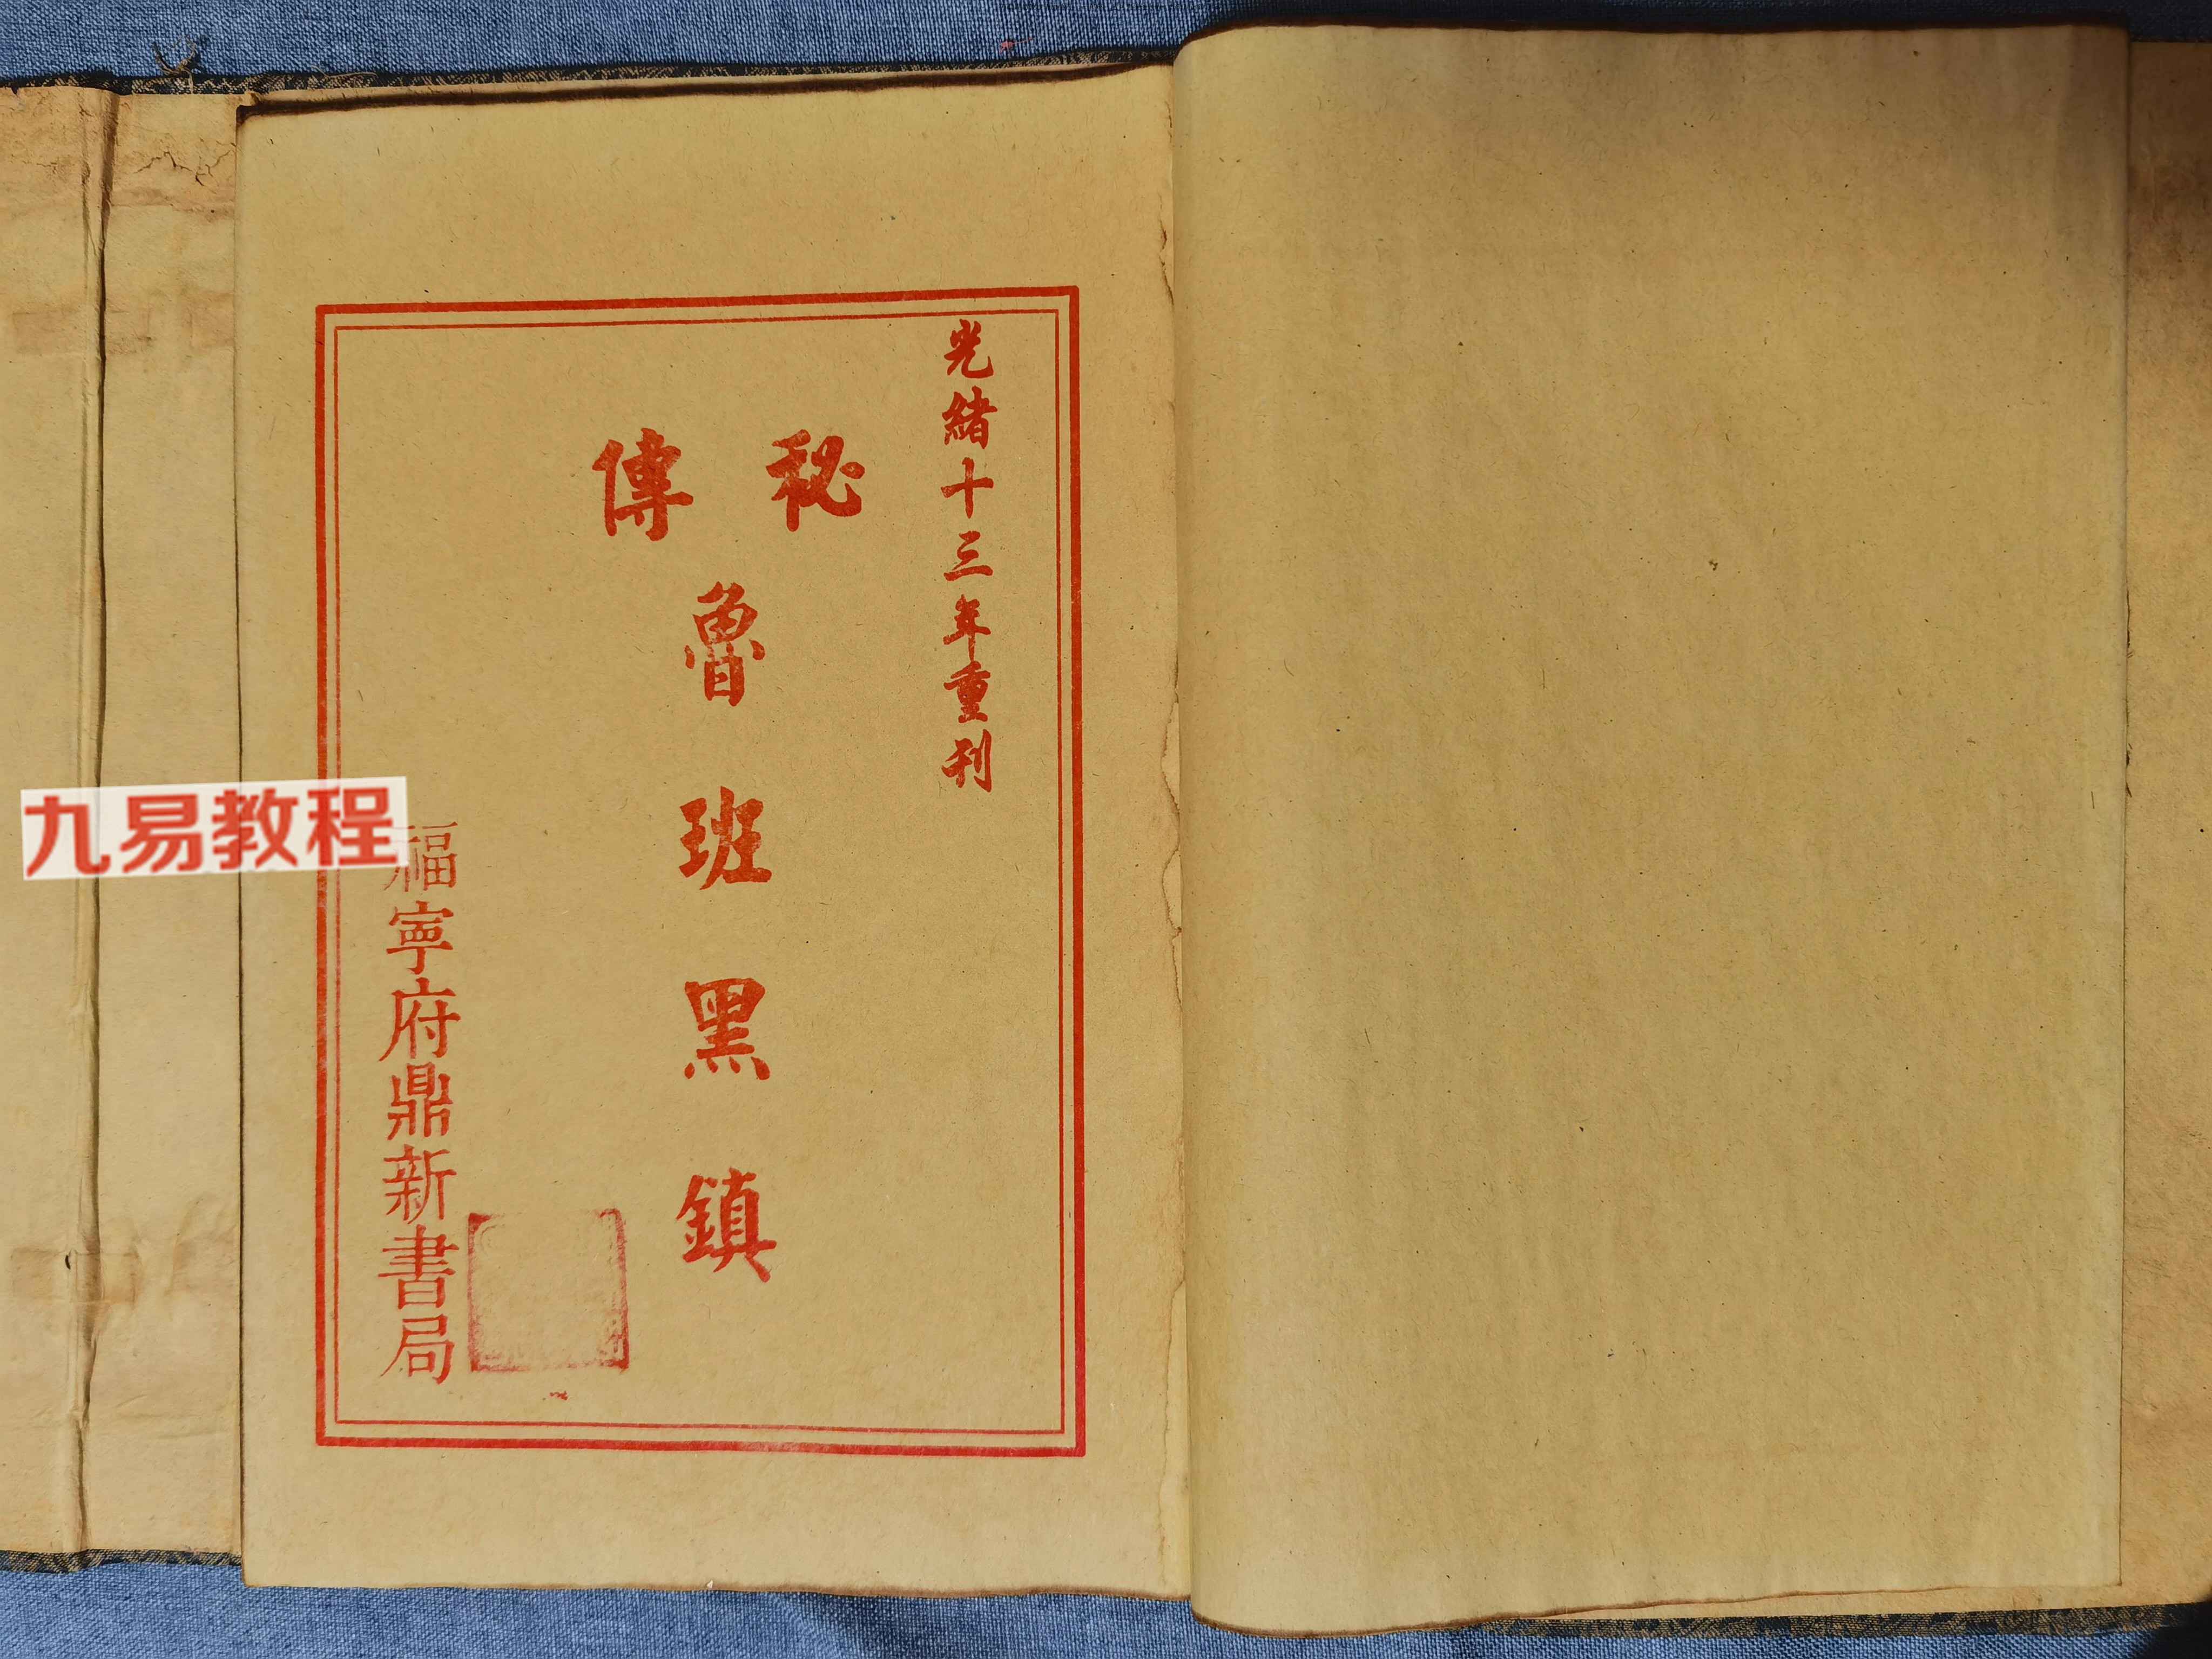 光緒十三年重刊
秘傳
魯班黑鎮
福寧府鼎新書局
九易教程